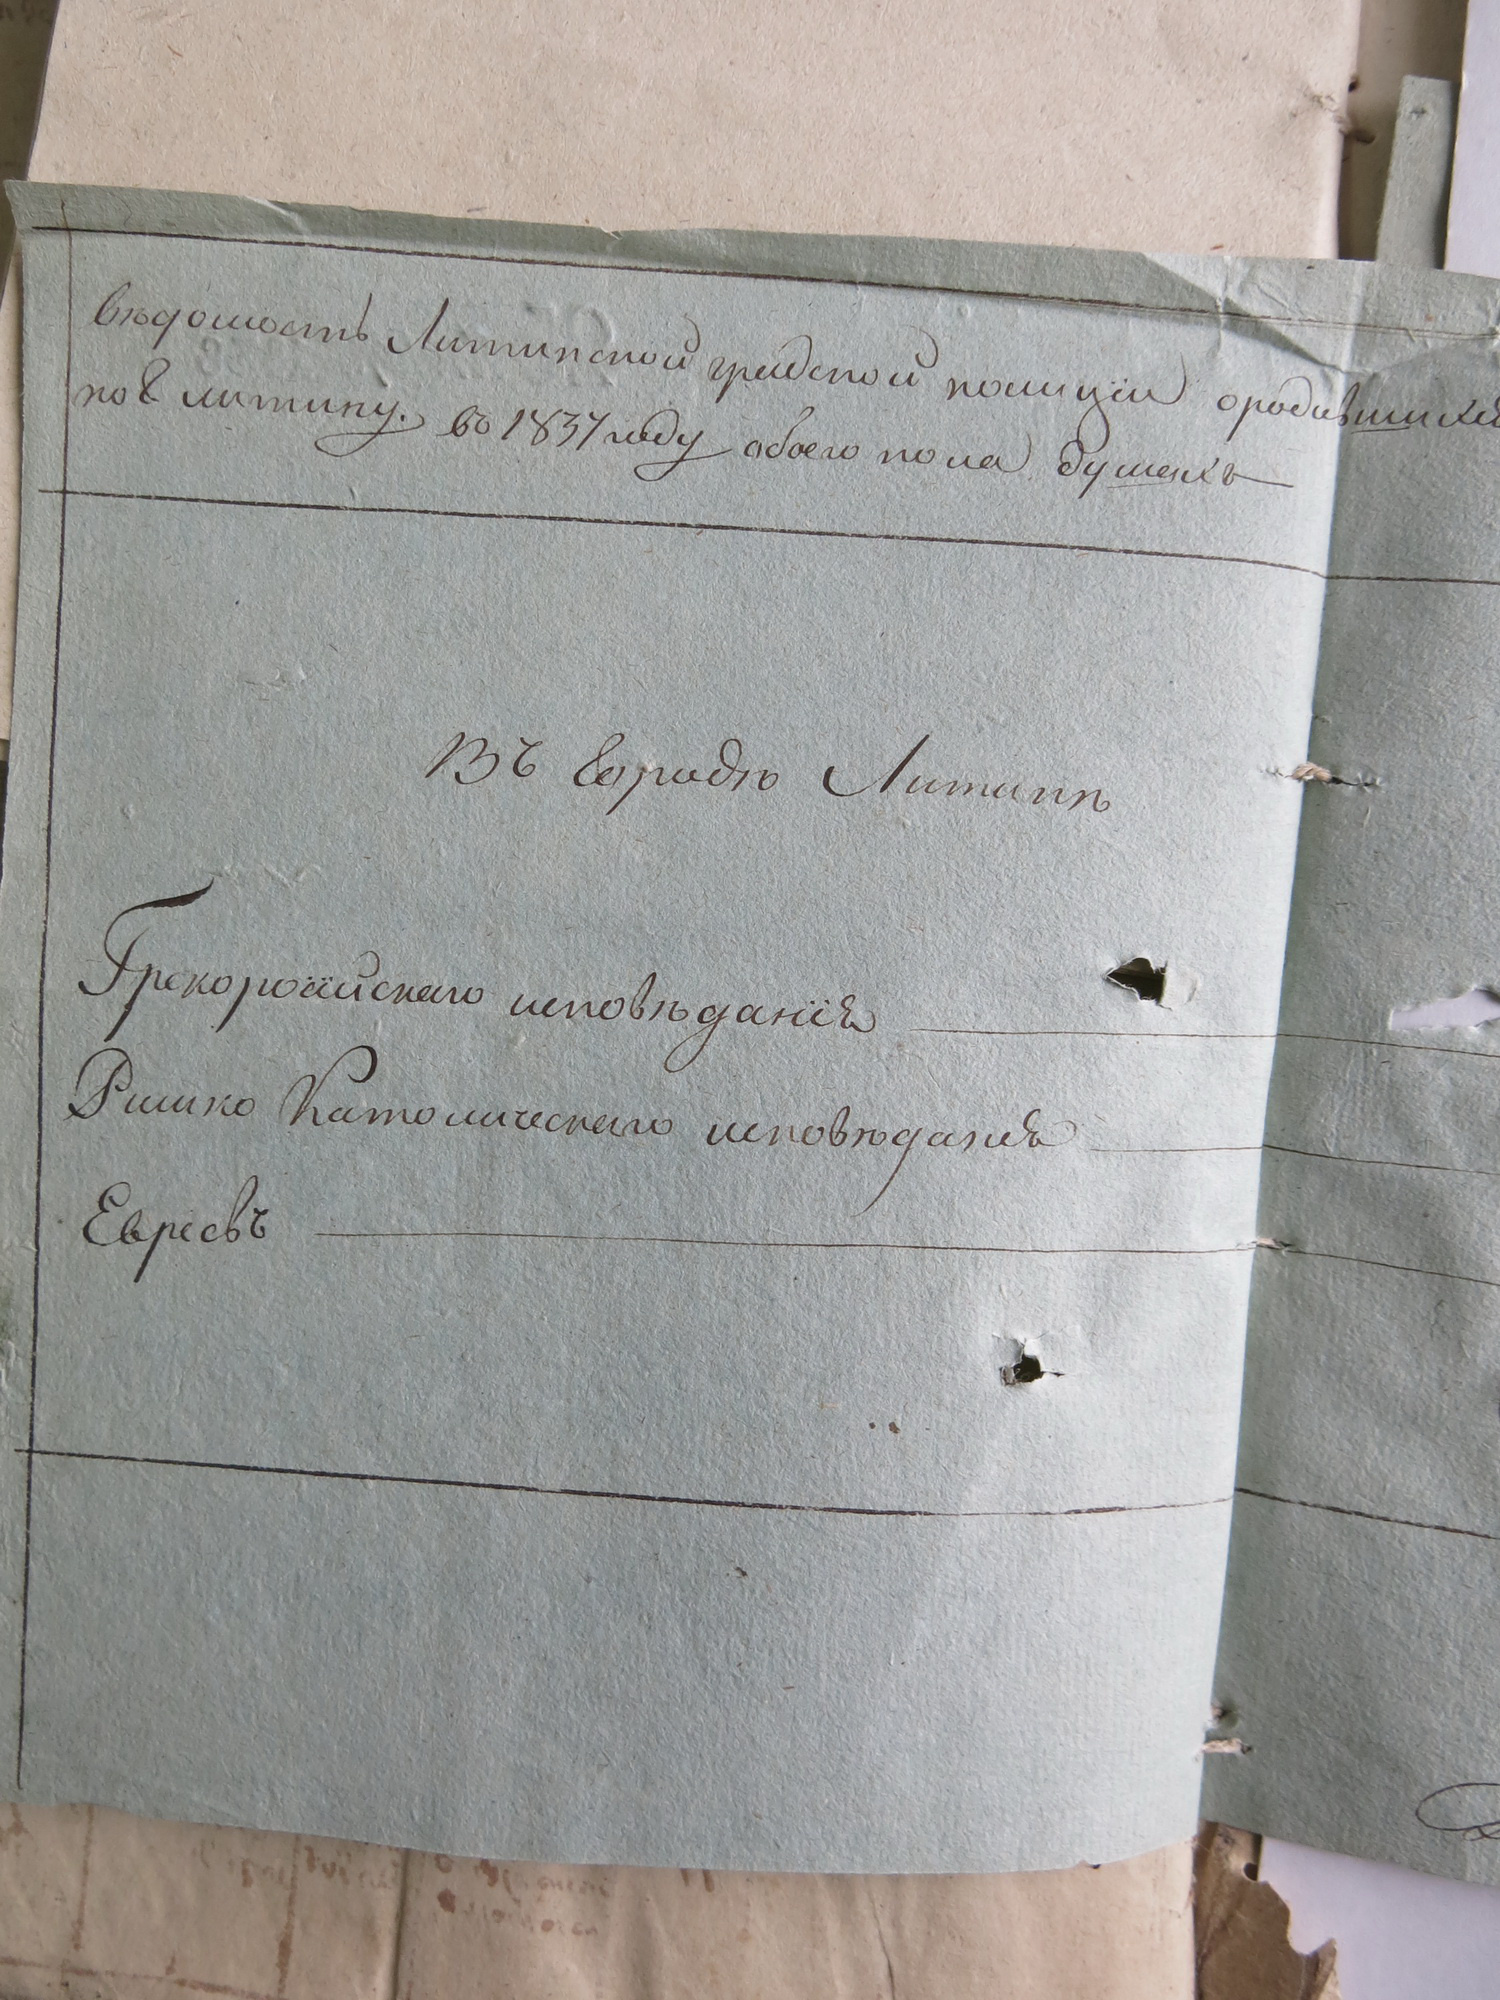 вѣдомость Литинской градской полиціи ородившихся
по г литину. въ 1837 году обоего пола душахъ
Въ городѣ Литинѣ
Грекоросійскаго исповѣданія
Римко Католическаго исповѣданія
Евреевъ